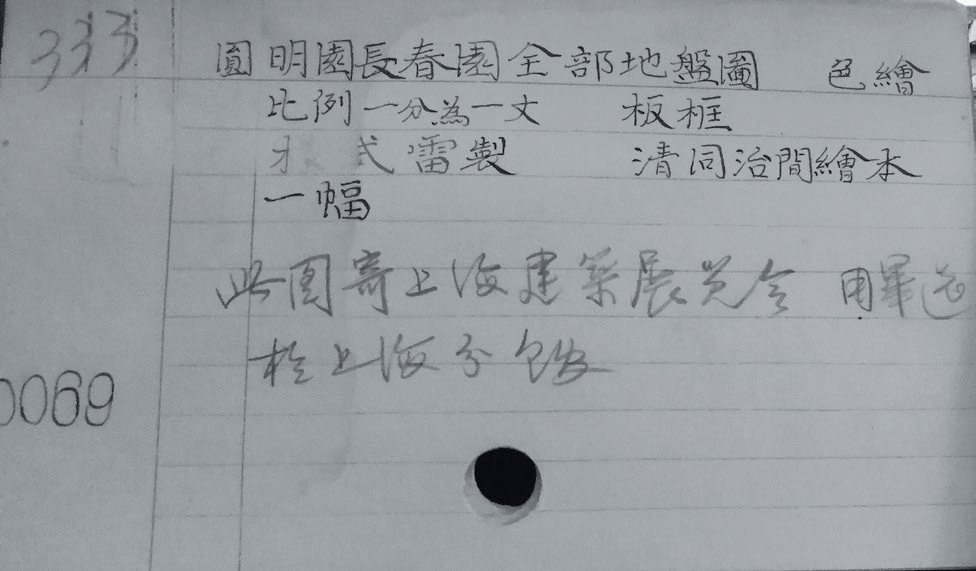 333
圓明園長春園全部地盤圖 色繪
比例一分為一丈 板框
式雷製 清同治間繪本
一幅
此图寄上海建築展览会 用畢
於上海分
0069